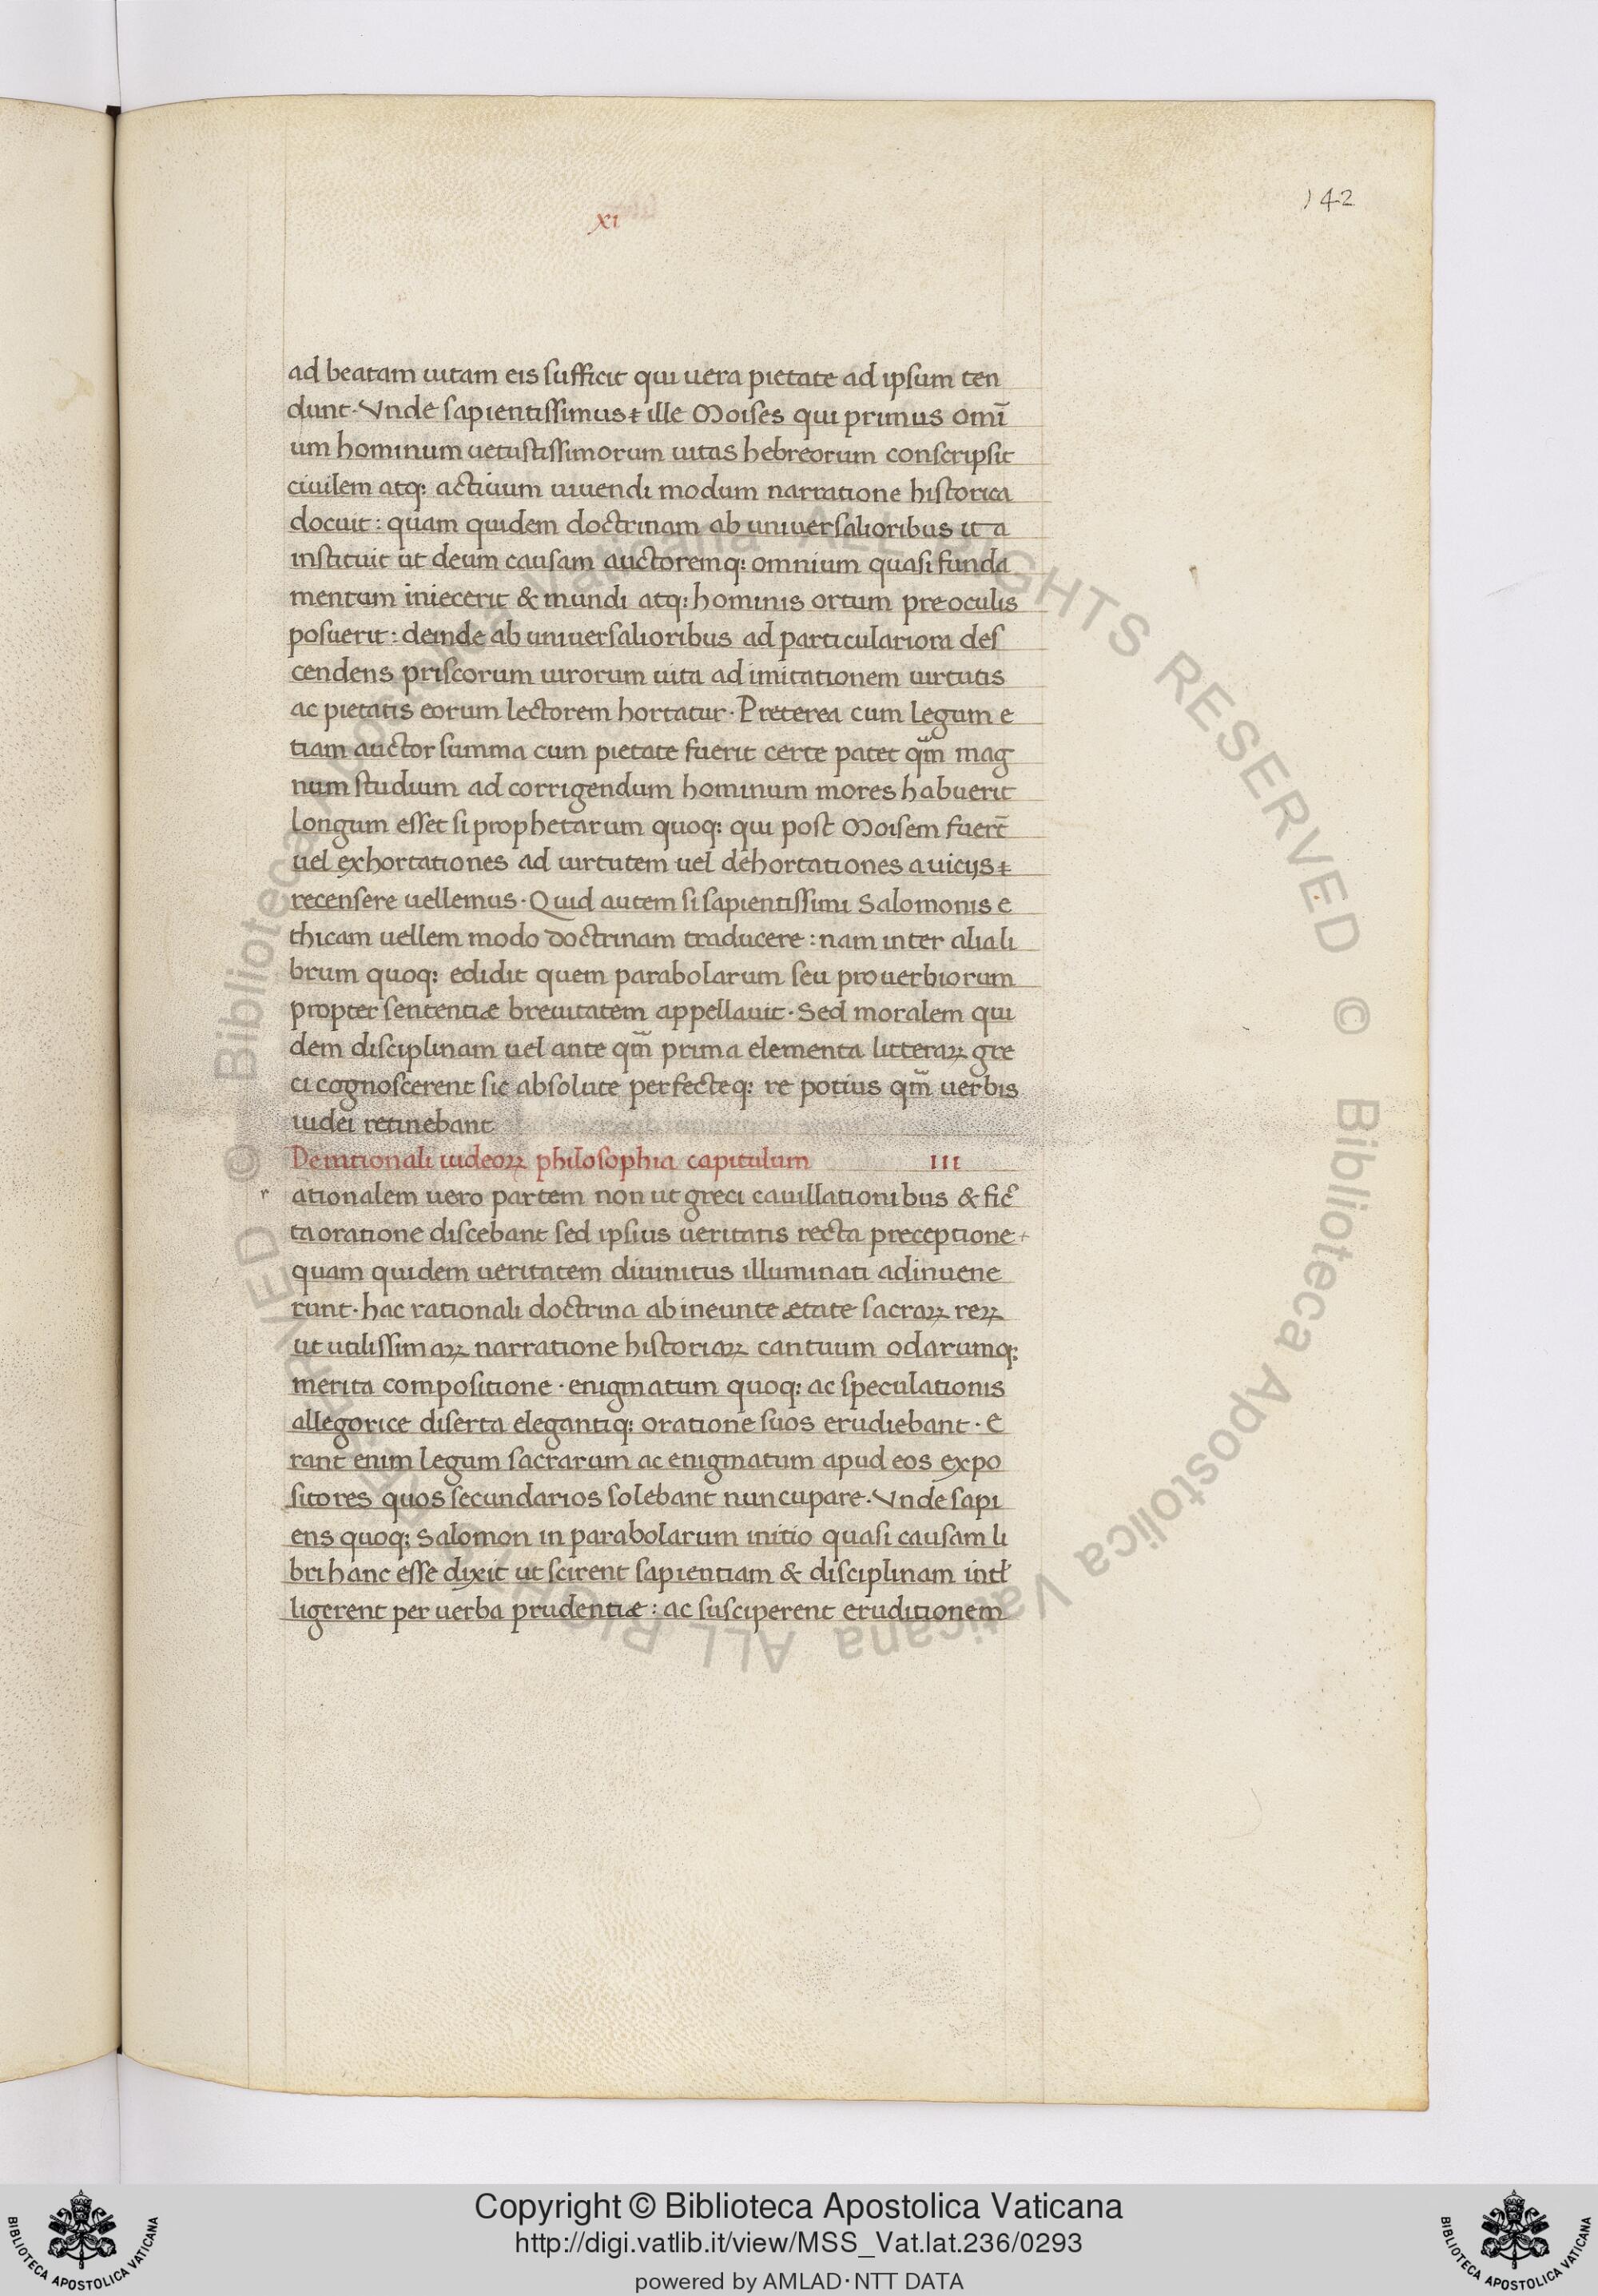 142
xi
ad beatam uitam eis sufficit qui uera pietate ad ipsum ten
dunt· Vnde sapientissimus ⁊ ille Moises qui primus omī
um hominum uetustissimorum uitas hebreorum conscripsit
ciuilem atq: actiuum uiuendi modum narratione historica
docuit: quam quidem doctrinam ab uniuersalioribus ita
instituit ut deum causam auctoremq: omnium quasi funda
mentum iniecerit & mundi atq: hominis ortum preoculis
posuerit: deinde ab uniuersalioribus ad particulariora des
cendens priscorum uirorum uita ad imitationem uirtutis
ac pietatis eorum lectorem hortatur· Preterea cum legum e
tiam auctor summa cum pietate fuerit certe patet qm̄ mag
num studium ad corrigendum hominum mores habuerit
longum esset si prophetarum quoq: qui post Moisem fuert̄
uel exhortationes ad uirtutem uel dehortationes a uicijs ⁊
recensere uellemus· Quid autem si sapientissimi Salomonis e
thicam uellem modo doctrinam traducere: nam inter alia li
brum quoq: edidit quem parabolarum seu prouerbiorum
propter sententiæ breuitatem appellauit· Sed moralem qui
dem disciplinam uel ante qm̄ prima elementa litteraꝝ gre
ci cognoscerent sic absolute perfecteq: re potius qm̄ uerbis
iudei retinebant
De rationali iudeoꝝ philosophia capitulum III
r ationalem uero partem non ut greci cauillationibus & fic̄
ta oratione discebant sed ipsius ueritatis recta preceptione
quam quidem ueritatem diuinitus illuminati adinuene
runt· hac rationali doctrina ab ineunte ætate sacraꝝ reꝝ
ut utilissimaꝝ narratione historiaꝝ cantuum odarumq:
merita compositione· enigmatum quoq: ac speculationis
allegorice diserta elegantiq: oratione suos erudiebant· E
rant enim legum sacrarum ac enigmatum apud eos expo
sitores quos secundarios solebant nuncupare· Vnde sapi
ens quoq: Salomon in parabolarum initio quasi causam li
bri hanc esse dixit ut scirent sapientiam & disciplinam intł
ligerent per uerba prudentiæ: ac susciperent eruditionem
© Biblioteca Apostolica Vaticana ALL RIGHTS RESERVED © Biblioteca Apostolica Vaticana ALL RIGHTS RESERVED
Copyright © Biblioteca Apostolica Vaticana
http://digi.vatlib.it/view/MSS_Vat.lat.236/0293
powered by AMLAD·NTT DATA
BIBLIOTECA APOSTOLICA VATICANA
BIBLIOTECA APOSTOLICA VATICANA